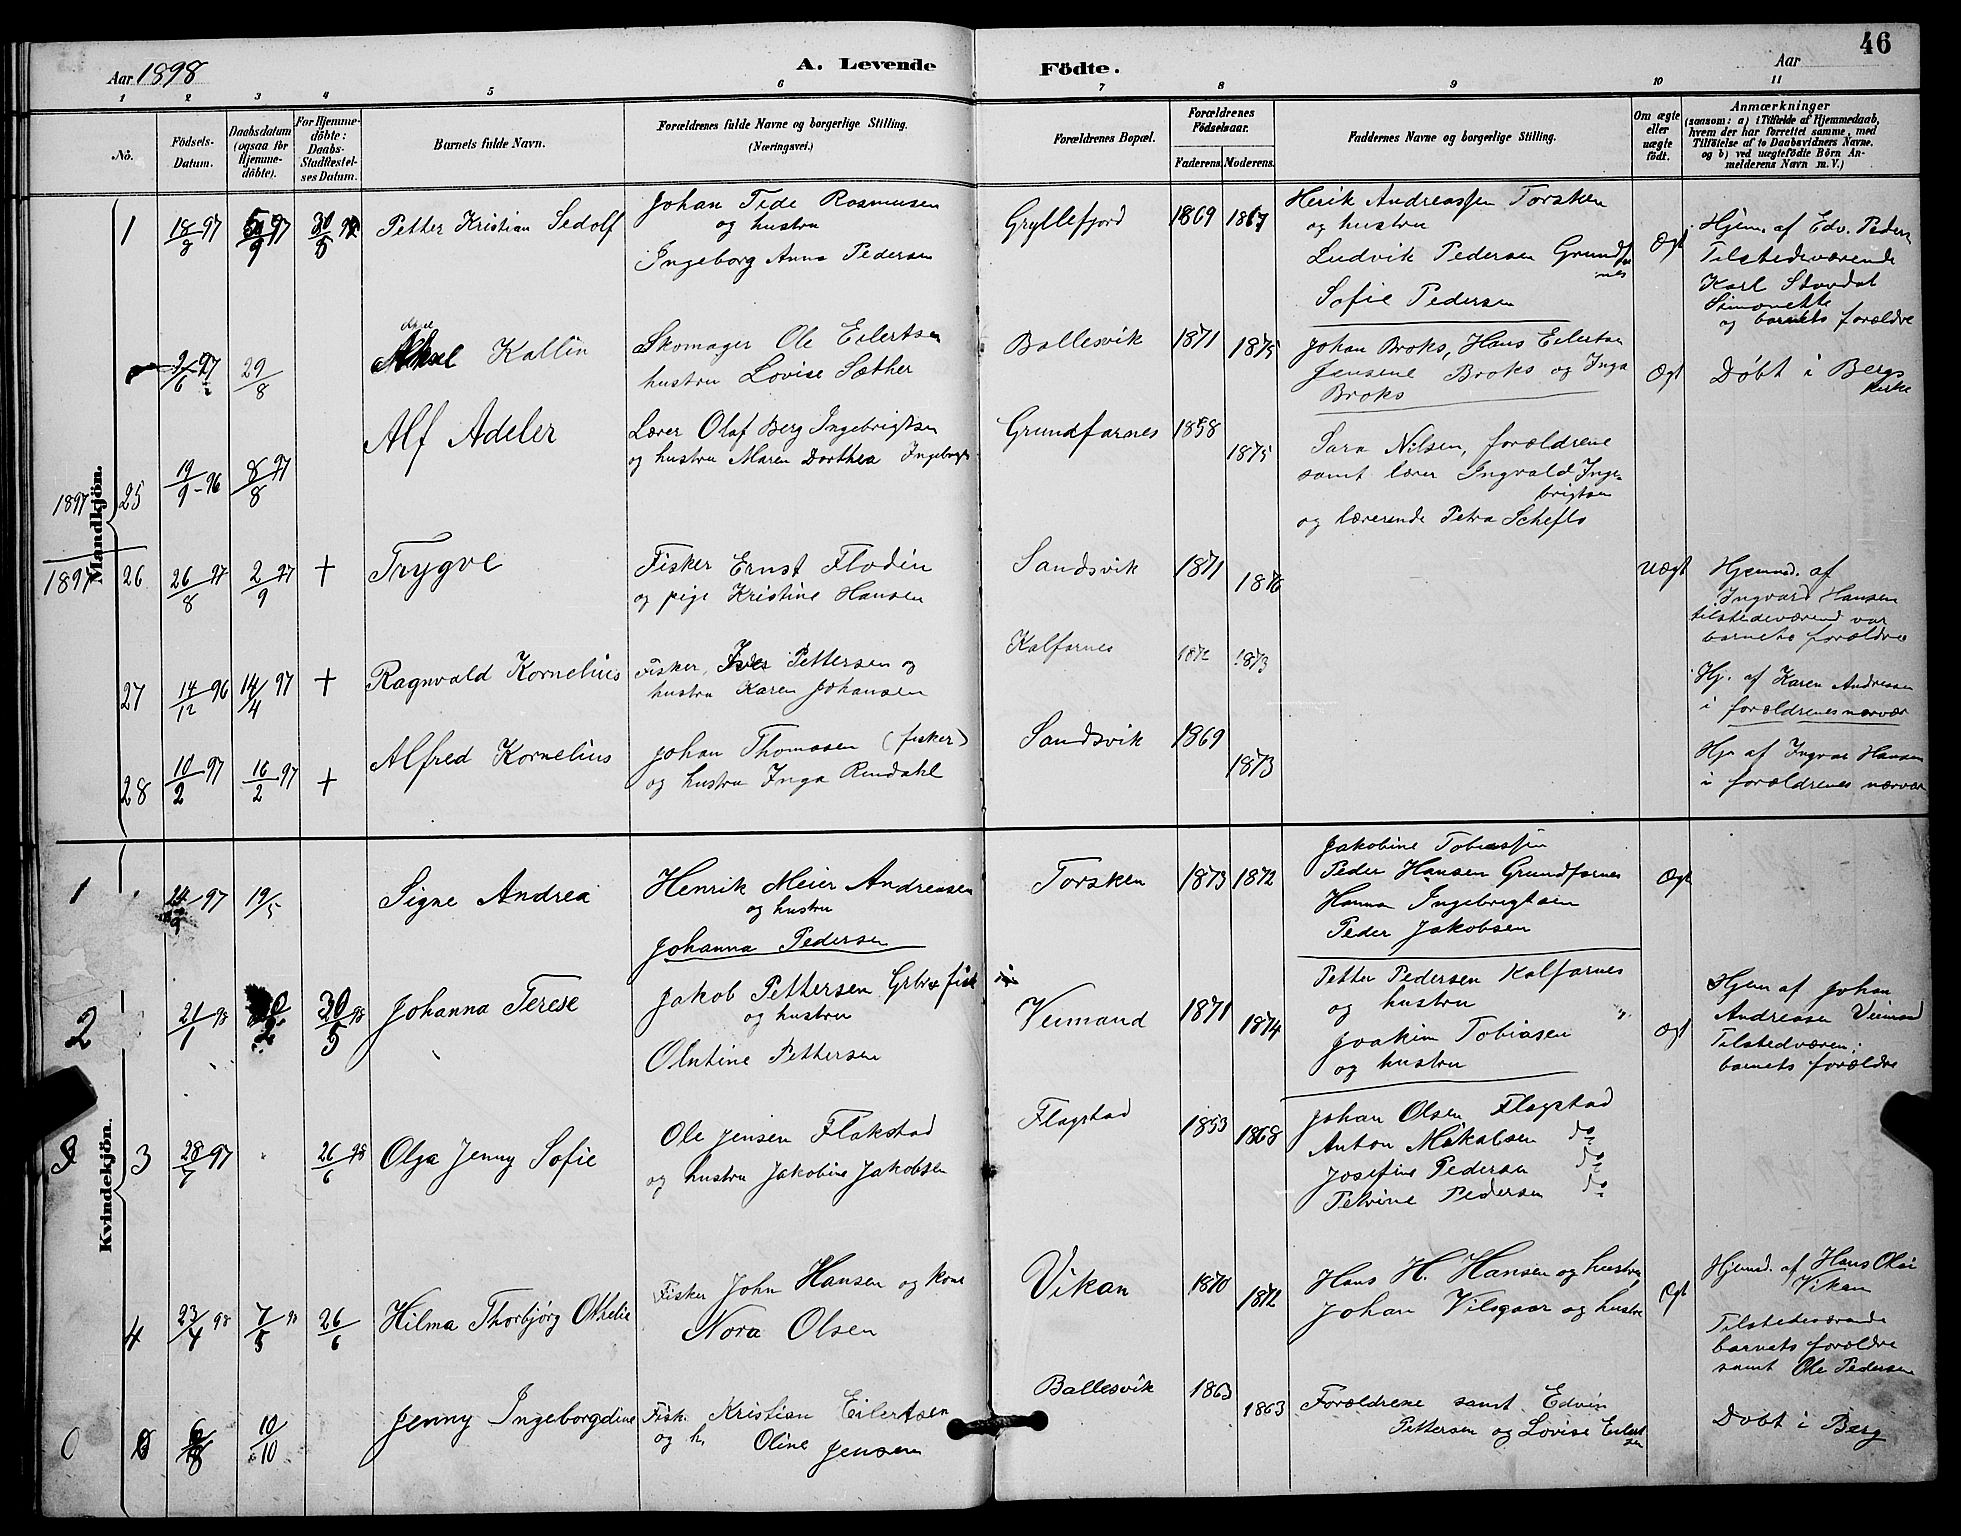 46
Aar 1898
A. Levende
Födte.
Aar
1 2 3 4 5 6 7 8 9 10 11
No.
Födsels-
Datum.
Daabsdatum
(ogsaa for
Hjemme-
döbte).
For Hjemme-
döbte:
Daabs-
Stadfæstel-
ses Datum.
Barnets fulde Navn.
Forældrenes fulde Navne og borgerlige Stilling.
(Næringsvei.)
Forældrenes Bopæl.
Forældrenes
Födselsaar.
Faderens. Moderens.
Faddernes Navne og borgerlige Stilling.
Om ægte
eller
uægte
födt.
Anmærkninger
(saasom: a) i Tilfælde af Hjemmedaab,
hvem der har forrettet samme, med
Tilföielse af to Daabsvidners Navne.
og b) ved uægtefödte Börn An-
melderens Navn m. V.)
Mandkjön.
1 18/8 97 5/9 97 30/5
Petter Kristian Sedolf
Johan Tide Rasmusen
og hustru
Ingeborg Anna Pedersen
Gryllefjord 1869 1867
Henrik Andreassen Torsken
og hustru
Ludvik Pedersen Grundf
nes
Sofie Pedersen
Ægt
Hjem. af Edv. Peders
Tilstedeværende
Karl
Simonette
og barnets forældre
/6 97 29/8
Aksel
Kallin
Skomager Ole Eilertsen
hustru Lovise Sæther
Ballesvik 1871 1875
Johan Broks, Hans Eilertsen
Jensine Broks og Inga
Broks
Ægt
Døbt i Bergs
kirke
1897
25 19/9-96 8/8 97
Alf Adeler
Lærer Olaf Berg Ingebrigtsen
og hustru Maren Dorthea Ingebrigts
Grundfarnes 1858 1875
Sara Nilsen, forældrene
samt lærer Ingvald Inge-
brigtsen
og lærerinde Petra Schefls
1897
26 26/8 97 2/9 97 +
Trygve
Fisker Ernst Flodin
og pige Kristine Hansen
Sandsvik 1871 1876
Uægt
Hjemmd. af
Ingvard Hansen
tilstedeværend var
barnets forældre
27 14/12 96 14/4 97 +
Ragnvald Kornelius
Fisker, Pettersen og
hustru Karen Johansen
Kalfarnes 1872 1873
Hj. af Karen Andreasen
i forældrenes nærvær
28 10/2 97 16/2 97 +
Alfred Kornelius
Johan Thomasen (fisker)
og hustru Inga Rindahl
Sandsvik 1869 1873
Hj. af Ingvar Hansen
i forældrenes nærvær
Kvindekjön.
1 97 19/5
Signe Andrea
Henrik Meier Andreasen
og hustru
Johanna Pedersen
Torsken 1873 1872
Jakobine Tobiassen
Peder Hansen Grundfarnes
Hanna Ingebrigtsen
Peder Jakobsen
Ægt
2 21/1 98 30/5 98
Johanna Terese
Jakob Pettersen Grbr. fisk
og hustru
Olntine Pettersen
Veimand 1871 1874
Petter Pedersen Kalfarnes
og hustru "
Joakim Tobiasen
og hustru
Ægt
Hjem af Johan
Andreasen Veimand
Tilstedværen:
barnets forældre
3 3 28/7 97 26/6 98
Olga Jenny Sofie
Ole Jensen Flakstad
og hustru Jakobine Jakobsen
Flagstad 1853 1868
Johan Olsen Flagstad
Anton Mikalsen do
Josefine Pedersen do
Petrine Pedersen do
4 23/4 98 7/5 98 26/6
Hilma Thorbjørg Othelie
Fisker John Hansen og kone
Nora Olsen
Vikan 1870 1872
Hans H. Hansen og hustru
Johan Vilsgaar og hustru
Ægt
Hjemd. af Hans Olsen
Vikan
Tilstedeværende
barnets forældre
samt Ole Pedersen
0 /8 10/10
Jenny Ingeborgdine
Fisk. Kristian Eilertsen
og h. Oline Jensen
Ballesvik 1863 1863
Forældrene samt Edvin
Pettersen og Lovise Eilert
sen
Døbt i Berg